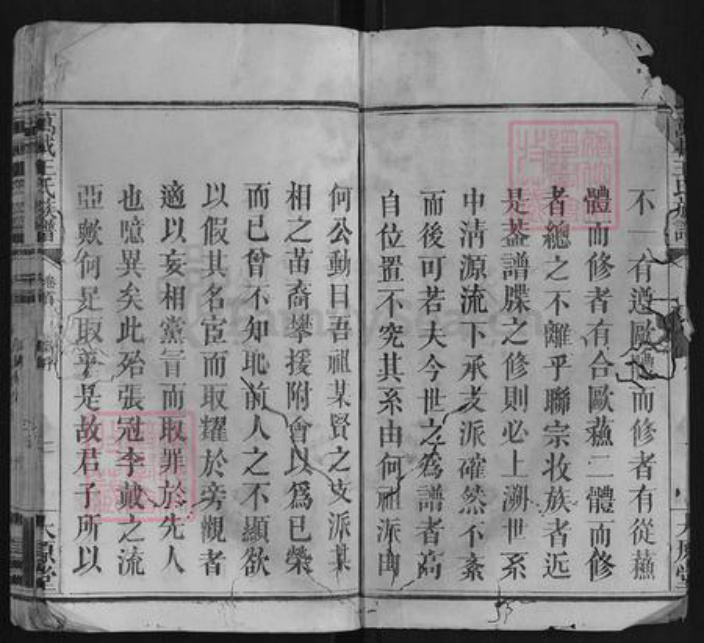 不一有遵歐體而修者有從蘇
體而修者有合歐蘇二體而修
者總之不離乎聯宗收族者近
是葢譜牒之修則必上溯世系
中清源流下承支派確然不紊
而後可若夫今世之為譜者高
自位置不究其系由何祖派由
何公動曰吾祖某賢之支派某
相之苗裔攀援附會以為已榮
而已曾不知恥前人之不顯欲
以假其名宦而取耀於旁觀者
適以妄相黨冒而取罪於先人
也噫異矣此殆張冠李戴之流
亞歟何足取乎是故君子所以
萬載王氏族譜
卷首
太原堂